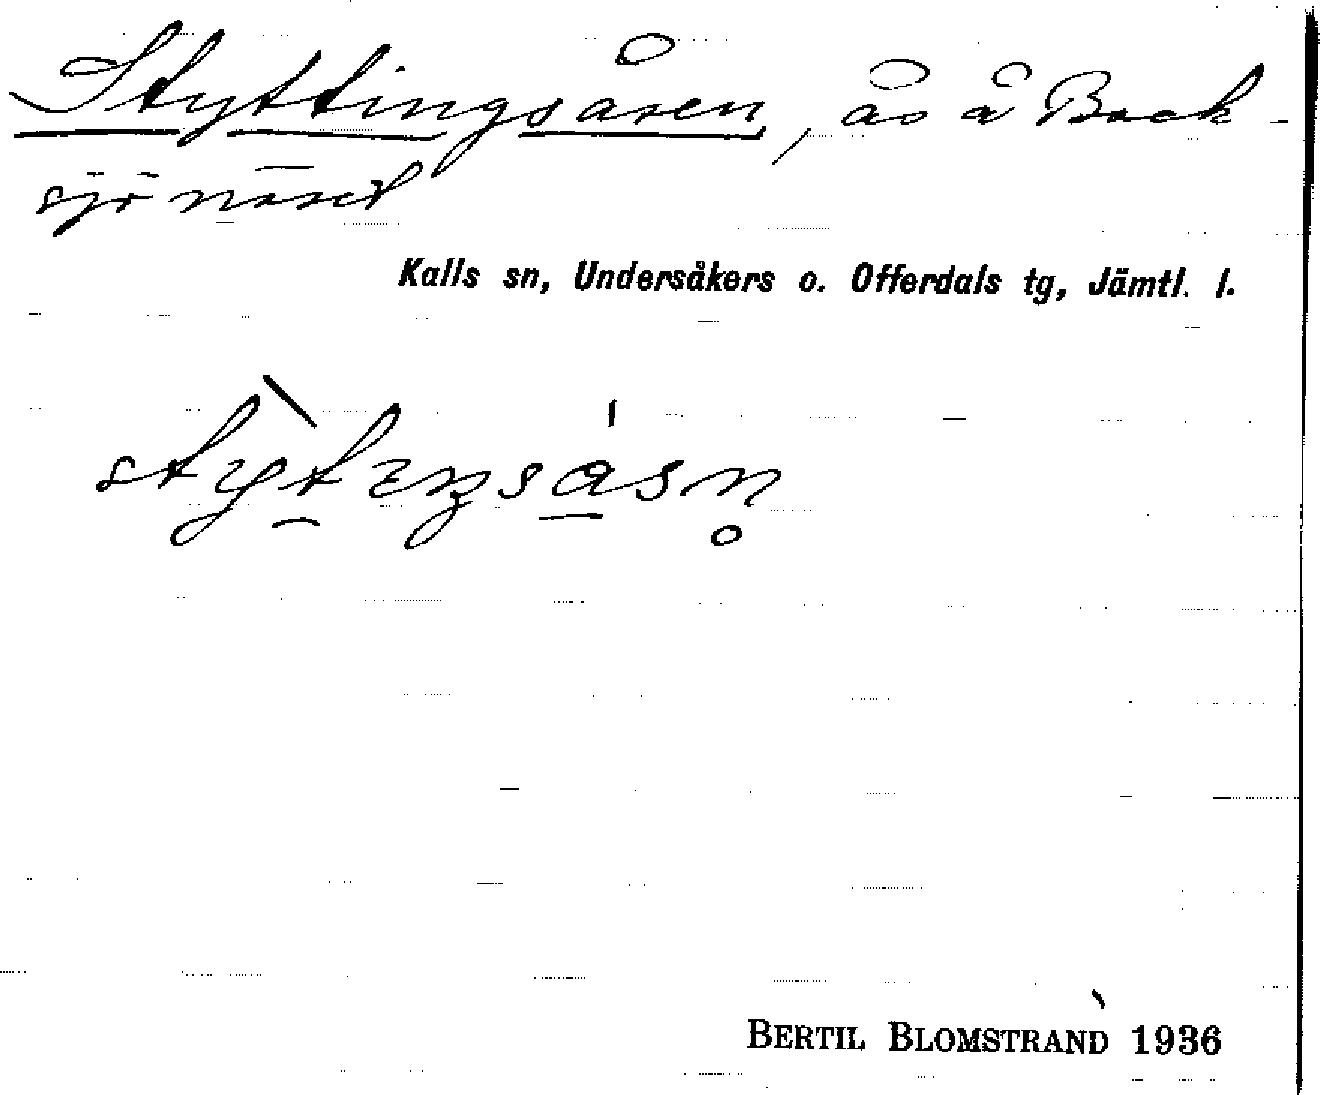 Styttingsåsen, ås å Back-
sjönäset
Kalls sn, Undersåkers o. Offerdals tg, Jämtl. l.
BERTIL BLOMSTRAND 1936